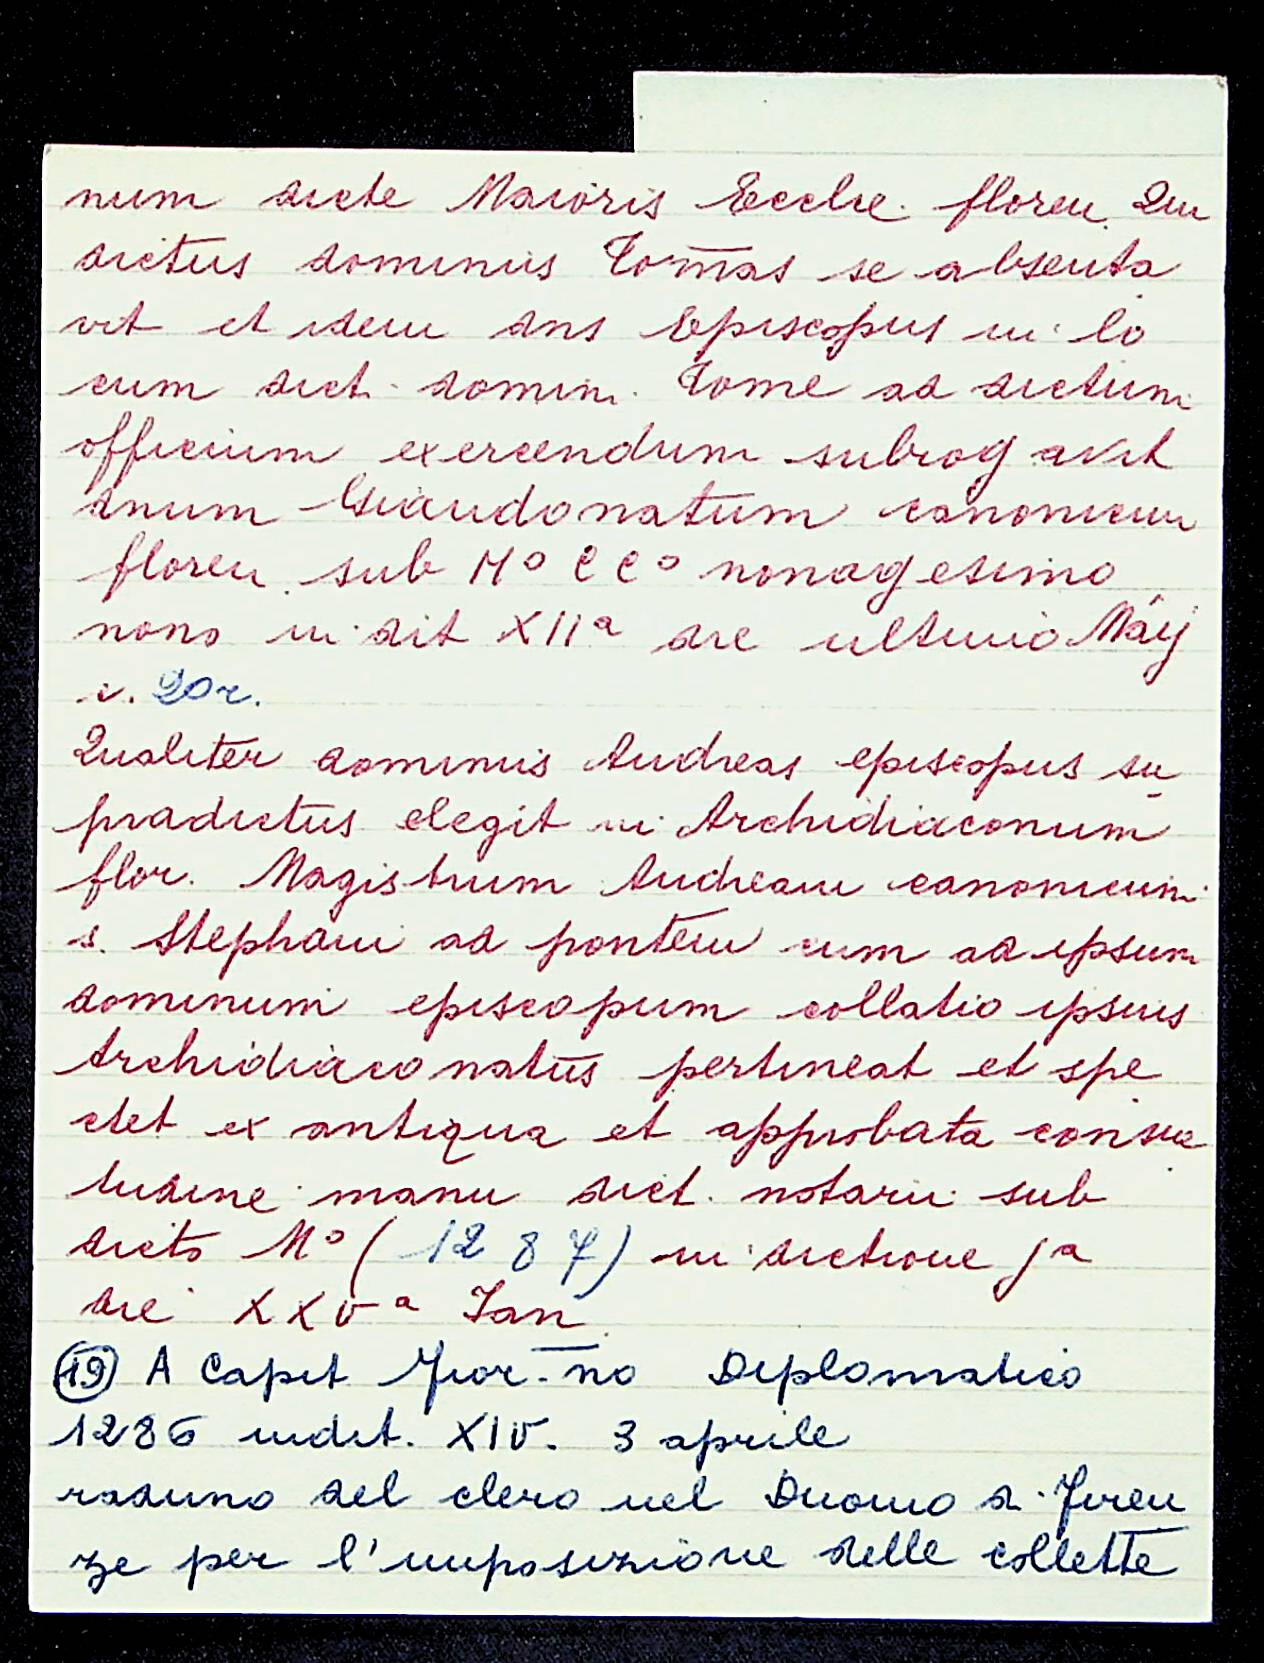 num dicte Maioris Ecclie. floren. Qui
dictus dominus Tomas se absenta
vit et idem dns Episcopus in lo
cum dict. domin. Tome ad dictum
officium exercendum subrogavit
dnum Giandonatum canonicum
floren. sub M° CC° nonagesimo
nono indit XIIª die ultimo Maij
c. 20r.
Qualiter dominus Andreas episcopus su
pradictus elegit in Archidiaconum
flor. Magistrum Andream canonicum
s. Stephani ad pontem cum ad ipsum
dominum episcopum collatio ipsius
Archidiaconatus pertineat et spe
ctet ex antiqua et approbata consue
tudine manu dict. notarii sub
dicto M° (1287) indictione jª
die XXVª Ian
(19) A Capit. Fior-no Diplomatico
1286 indit. XIV. 3 aprile
raduno del clero nel Duomo di Firen
ze per l'imposizione delle collette